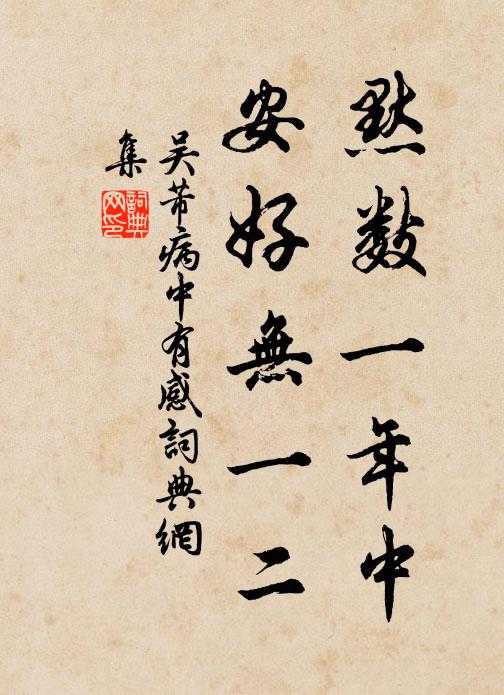 默數一年中
安好無一二
吳芾病中有感詞典網
集
詞典
网印